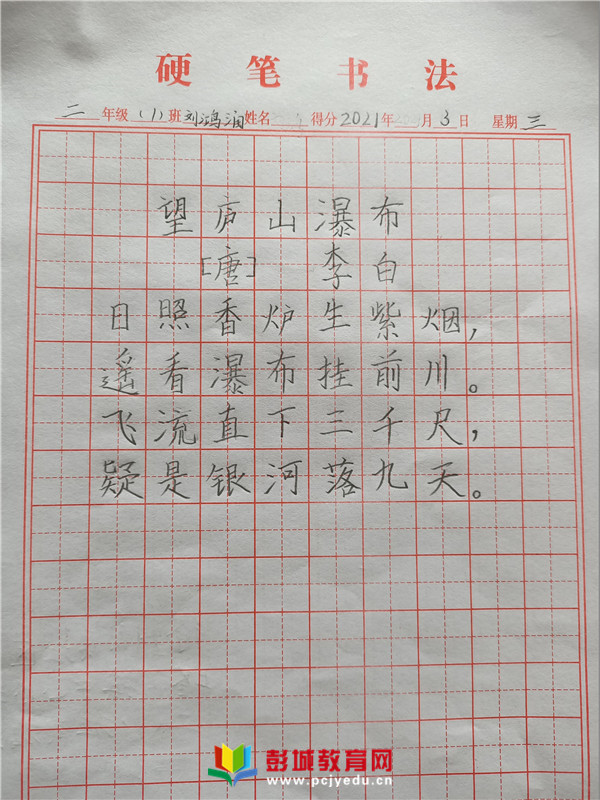 硬笔书法
二年级(1)班刘鸿润姓名 得分2021年 月3日 星期三
望庐山瀑布
[唐] 李白
日照香炉生紫烟,
遥看瀑布挂前川。
飞流直下三千尺,
疑是银河落九天。
彭城教育网
www.pcjyedu.cn